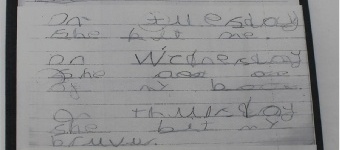 On Tuesday
she bit me.
on Wednesday
she
of my
On thursday
she bit my